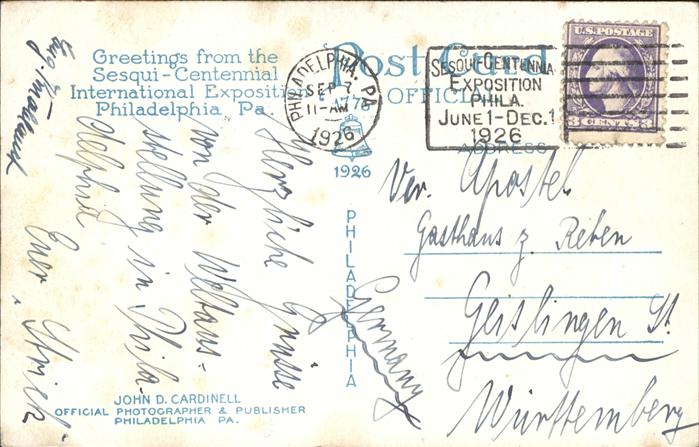 Greetings from the
Sesqui-Centennial
International Exposition
Philadelphia Pa.
Post Card
OFFICIAL
PHILADELPHIA, PA.
SEP 7
11-AM
1926
1776
1926
SESQUI CENTENNIAL
EXPOSITION
PHILA.
JUNE 1-DEC. 1
1926
U.S. POSTAGE
3 CENTS 3
ADDRESS
PHILADELPHIA
Herzliche Grüsse
von der Weltaus-
stellung in Phila-
delphia
Euer
Ver. Apostel
Gasthaus z. Reben
Geislingen St.
Württemberg
Germany
JOHN D. CARDINELL
OFFICIAL PHOTOGRAPHER & PUBLISHER
PHILADELPHIA PA.